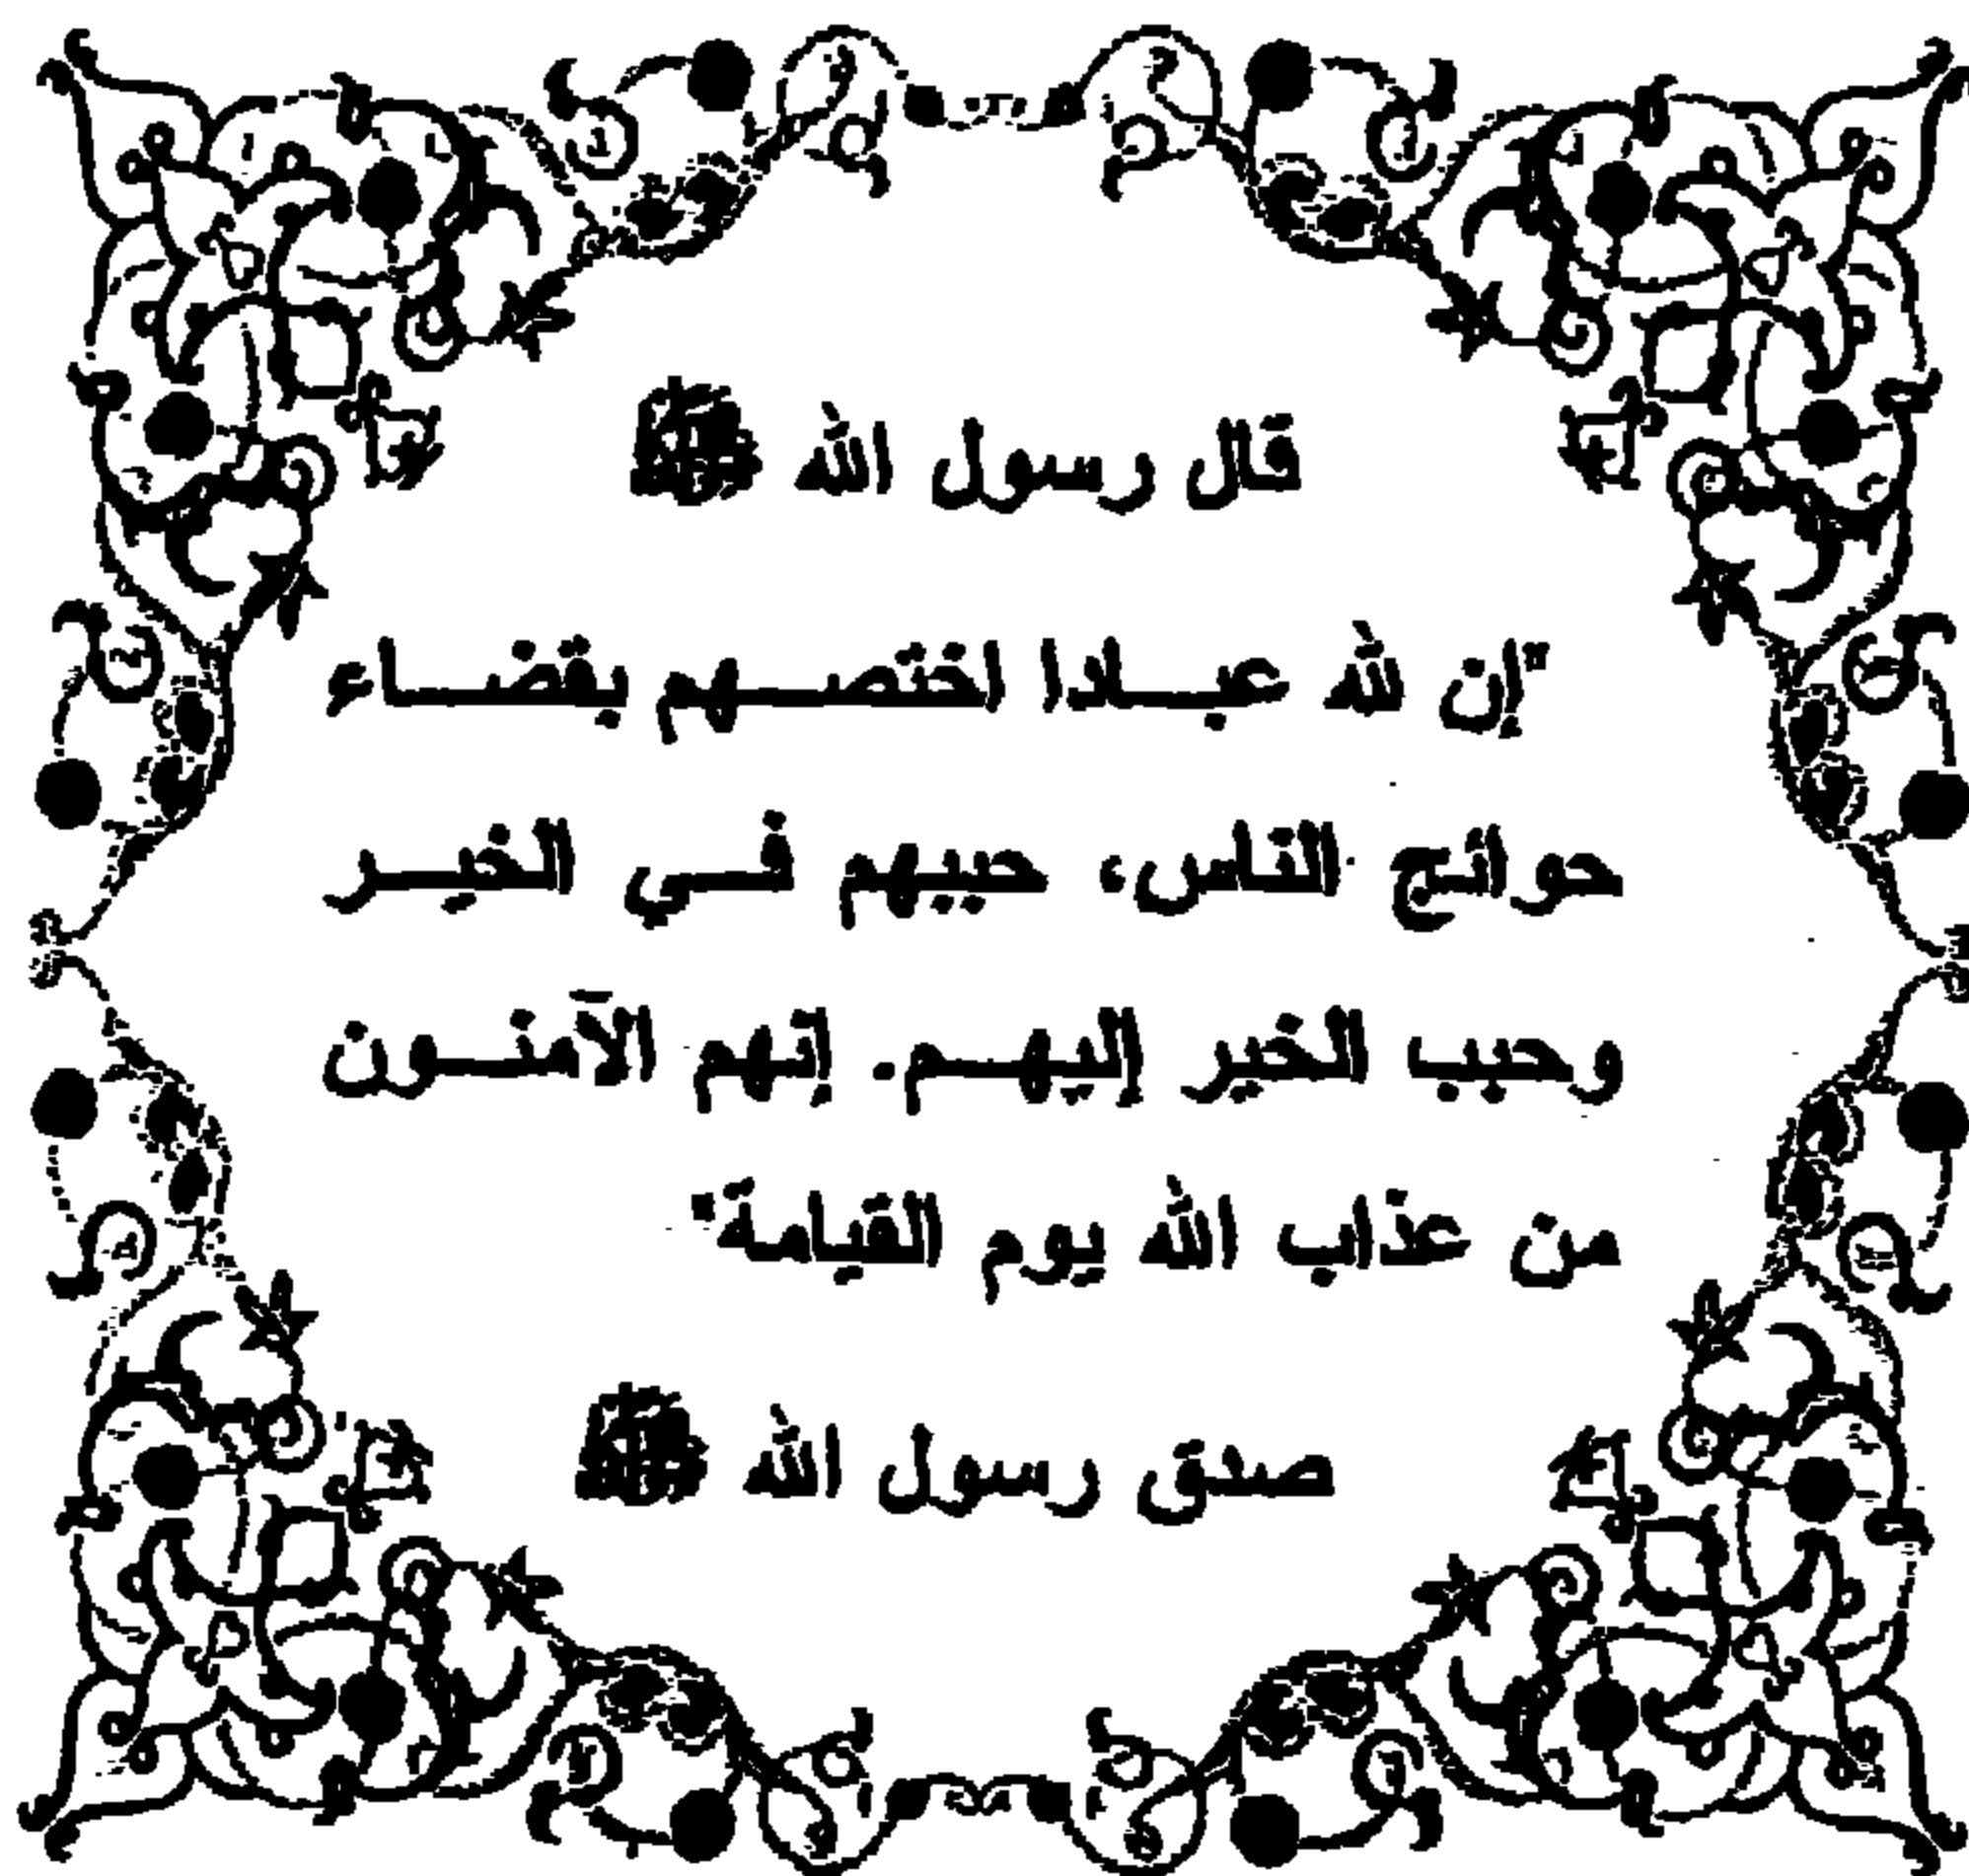 قال رسول الله ﷺ
"إن لله عبـادا اختصـهم بقضـاء
حوائج الناس، حببهم فـي الخيـر
وحبب الخير إليهـم. إنهم الآمنـون
من عذاب الله يوم القيامة"
صدق رسول الله ﷺ